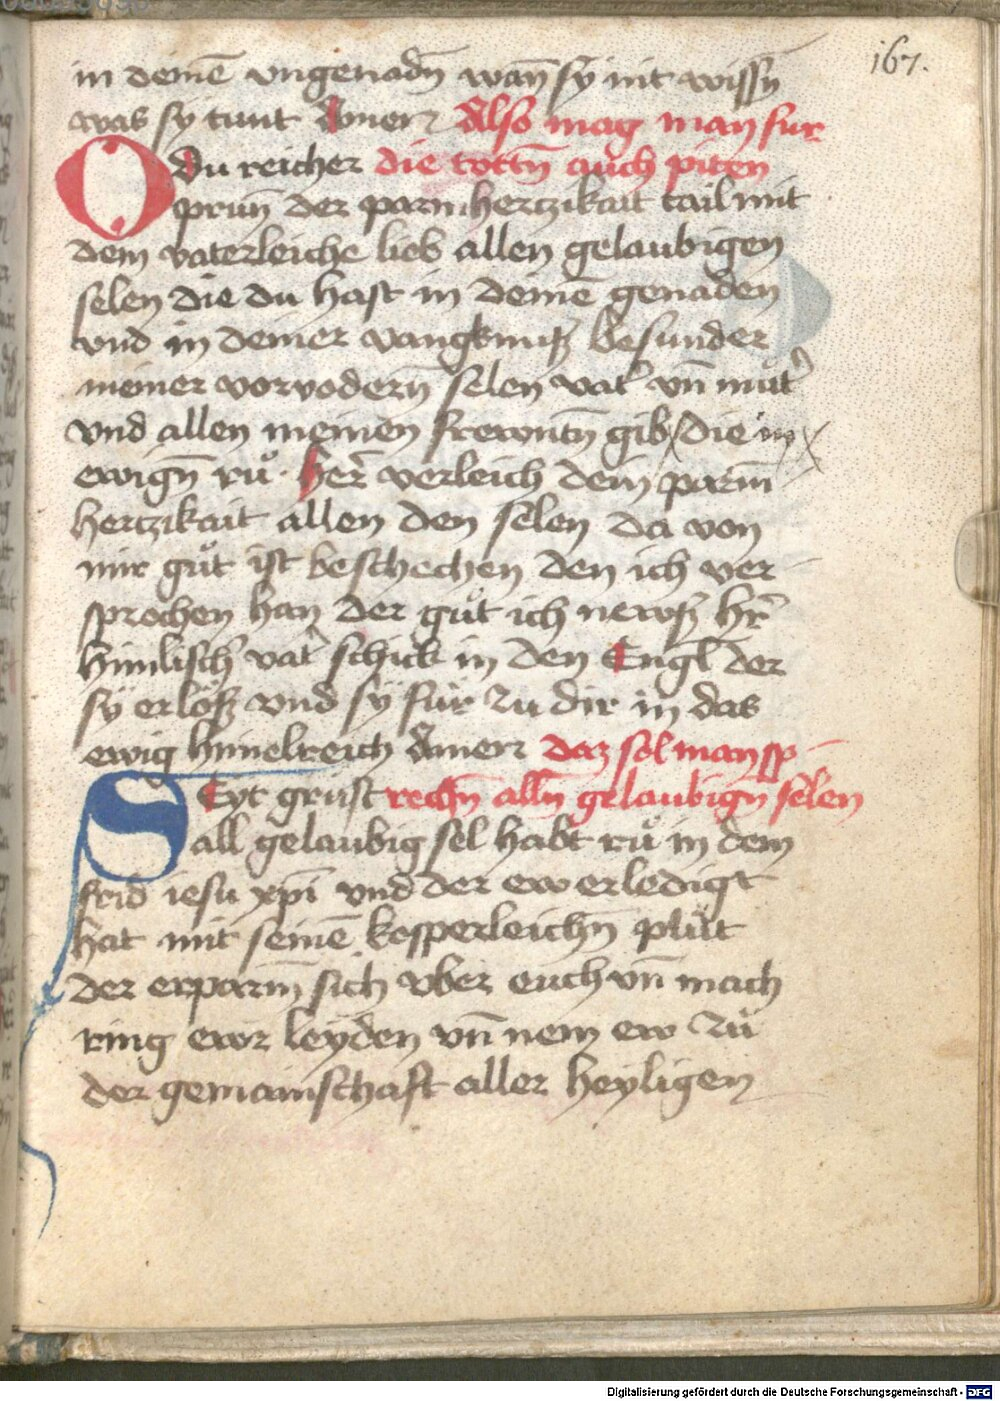 167.
in deinē vngenadn̄ wan̄ sy nit wissn̄
was sy tunt Amen Also mag man fur
O du reicher die tottn̄ auch piten
prun̄ der parmhertzikait tail mit
dem vaterleiche lieb allen gelaubigen
selen die du hast in deinē genaden
vnd in deiner vangknuß besunder
meiner vorvodern̄ selen vat̾ vn̄ mut̾
vnd allen meinen frewntn̄ gib die
ewign̄ ruͦ. her̄ verleich dein parm̄
hertzikait allen den selen da von
mir guͦt ist beschechen den ich ver
sprochen han der guͦt ich newß hr̄
himlisch̾ vat̾ schick in den Engl der
sÿ erlöß vnd sÿ fuͤr zu dir in das
ewig himelreich Amen daz sol man sp
SEyt grust rechn̄ alln̄ gelaubign̄ selen
all gelaubig sel habt ruͦ in dem
frid iesu xp̄i vnd der ew erledigt
hat mit seinē kosperleichn̄ pluͦt
der erparm̄ sich vber euch vn̄ mach
ring ewr leyden vn̄ nem ew zuͦ
der gemainschaft aller heyligen
Digitalisierung gefördert durch die Deutsche Forschungsgemeinschaft - DFG